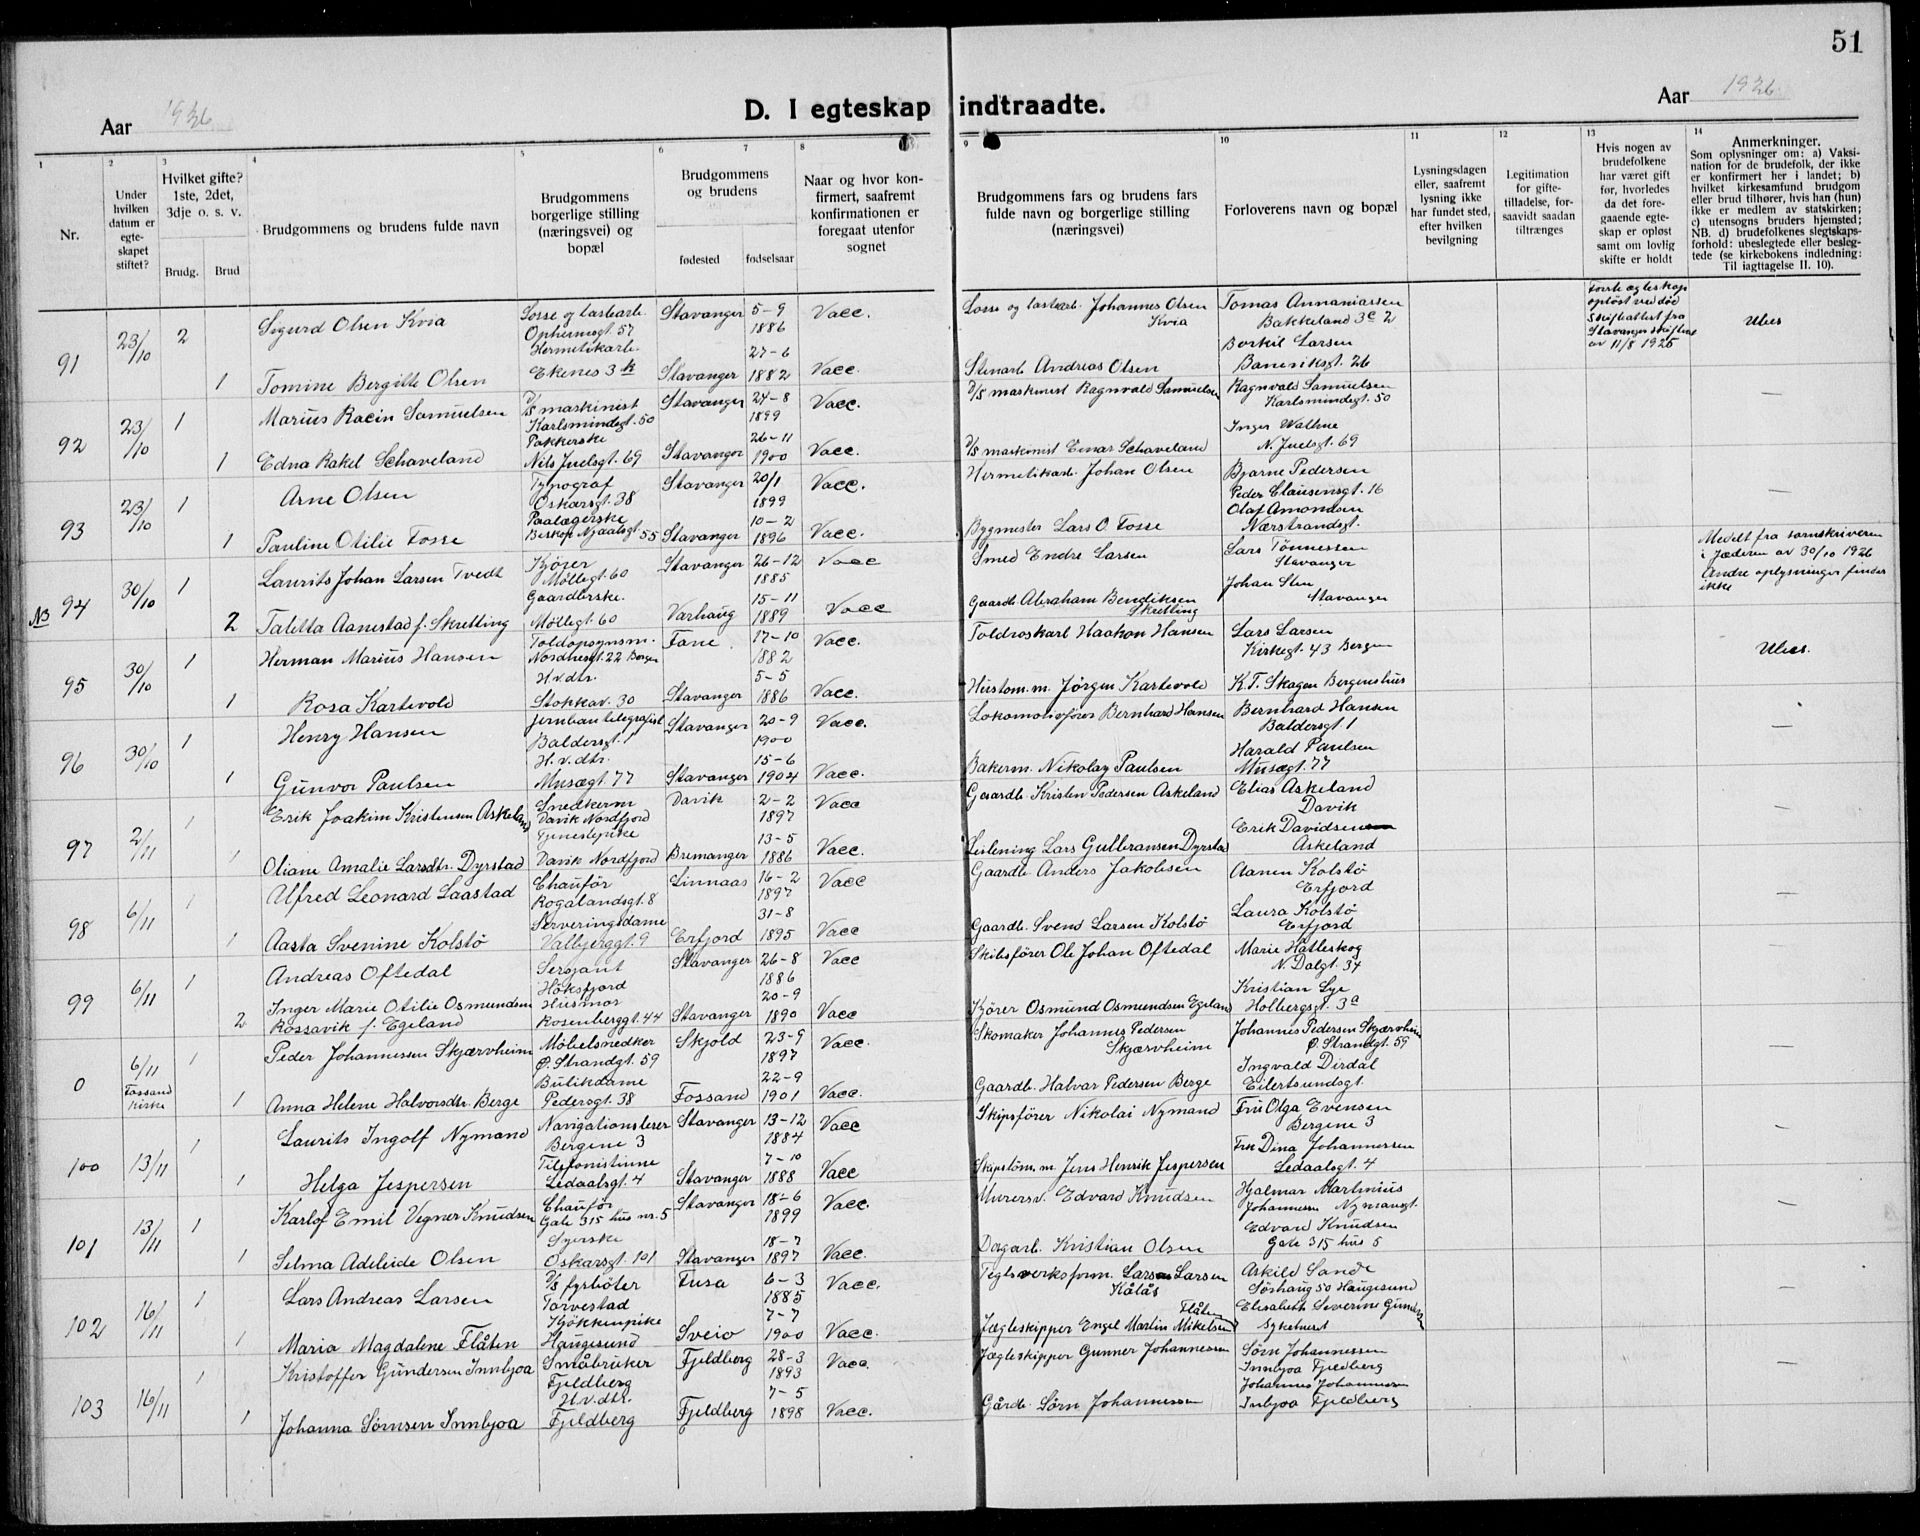 51
Aar 1926
D. I egteskap indtraadte.
Aar 1926
1
2
3
4
5
6
7
8
9
10
11
12
13
14
Nr.
Under hvilken datum er egteskapet stiftet?
Hvilket gifte? 1ste, 2det, 3dje o. s. v.
Brudg.
Brud
Brudgommens og brudens fulde navn
Brudgommens borgerlige stilling (næringsvei) og bopæl
Brudgommens og brudens
fødested
fødselsaar
Naar og hvor konfirmert, saafremt konfirmationen er foregaat utenfor sognet
Brudgommens fars og brudens fars fulde navn og borgerlige stilling (næringsvei)
Forloverens navn og bopæl
Lysningsdagen eller, saafremt lysning ikke har fundet sted, efter hvilken bevilgning
Legitimation for giftetilladelse, forsaavidt saadan tiltrænges
Hvis nogen av brudefolkene har været gift før, hvorledes da det foregaaende egteskap er opløst samt om lovlig skifte er holdt
Anmerkninger.
Som oplysninger om: a) Vaksination for de brudefolk, der ikke er konfirmert her i landet; b) hvilket kirkesamfund brudgom eller brud tilhører, hvis han (hun) ikke er medlem av statskirken; c) utensogns bruders hjemsted; NB. d) brudefolkenes slegtskapsforhold: ubeslegtede eller beslegtede (se kirkebokens indledning: Til iagttagelse II. 10).
91 23/10 2 Sigurd Olsen Kvia Losse og lastearb. Opheimsgt. 57 Stavanger 5-9 1886 Vacc. Losse og lastearb. Johannes Olsen Kvia Tomas Annaniassen Bakkeland 3c 2 Første ægteskap opløst ved død Skifteattest fra Stavanger skifteret av 11/8 1925 Ubes
1 Tomine Bergitte Olsen Hermetikarb. Ekenes 3 k Stavanger 27-6 1882 Vacc. Stenarb. Andreas Olsen Borkil Larsen Baneviksgt. 26
92 23/10 1 Marius Racin Samuelsen D/S maskinist Karlsmindegt. 50 Stavanger 24-8 1899 Vacc. D/S maskinist Ragnvald Samuelsen Ragnvald Samuelsen Karlsmindegt. 50 —
1 Edna Rakel Schaveland Pakkerske Nils Juelsgt. 69 Stavanger 26-11 1900 Vacc. D/S maskinist Einar Schaveland Inger Wathne N. Juelsgt. 69
93 23/10 1 Arne Olsen Typograf Oskarsgt. 38 Stavanger 20/1 1899 Vacc. Hermetikarb. Johan Olsen Bjarne Pedersen Peder Clausensgt. 16 —
1 Pauline Otilie Fosse Paalægerske Biskop Njaalsgt 55 Stavanger 10-2 1896 Vacc. Bygmester Lars O. Fosse Olaf Amondsen Nærstrandsgt.
N3 94 30/10 1 Laurits Johan Larsen Tvedt Kjører Møllegt. 60 Stavanger 26-12 1885 Vacc Smed Endre Larsen Lars Tønnessen Stavanger Medelt fra sornskriveren i Jæderen av 30/10 1926 Andre oplysninger findes ikke
2 Taletta Aanestad f. Skretting Gaardberske. Møllegt. 60 Varhaug 15-11 1889 Vacc Gaardb. Abraham Bendiksen Skretting Johan Sten Stavanger
95 30/10 1 Herman Marius Hansen Toldopsynsm. Nordnesgt. 22 Bergen Fane. 17-10 1882 Vacc. Toldroskarl Haakon Hansen Lars Larsen Kirkegt. 43 Bergen Ubes.
1 Rosa Kartevold H.v.dtr. Stokkav. 30 Stavanger 5-5 1886 Vacc. Hustom.m. Jørgen Kartevold K.T. Skagen Bergenshus
96 30/10 1 Henry Hansen Jernbantelegrafist Baldersgt. 1 Stavanger 20-9 1900 Vacc. Lokomotivfører Bernhard Hansen Bernhard Hansen Baldersgt. 1 —
1 Gunvor Paulsen H.v.dtr. Musægt. 77 Stavanger 15-6 1904 Vacc. Bakerm. Nikolay Paulsen Harald Paulsen Musægt. 77
97 2/11 1 Erik Joakim Kristensen Askeland Snedkerm Davik Nordfjord Davik 2-2 1897 Vacc Gaardb. Kristen Pedersen Askeland Elias Askeland Davik —
1 Oliane Amalie Larsdtr. Dyrstad Tjenestepike Davik Nordfjord Bremanger 13-5 1886 Vacc. Leilening Lars Gulbransen Dyrstad Erik Davidsen Askeland
98 6/11 1 Alfred Leonard Laastad Chaufør Rogalandsgt. 8 Linnaas 16-2 1897 Vacc Gaardb. Anders Jakobsen Aanen Kolstø Erfjord —
1 Aasta Svenine Kolstø Serveringsdame Valbjerggt. 9 Erfjord 31-8 1895 Vacc Gaardb. Svend Larsen Kolstø Laura Kolstø Erfjord
99 6/11 1 Andreas Oftedal Sersjant Høksfjord Stavanger 26-8 1886 Vacc Skibsfører Ole Johan Oftedal Marie Hatleskog N. Dalgt. 34 —
2 Inger Marie Otilie Osmundsen Rossavik f. Egeland Husmor Rosenberggt. 44 Stavanger 20-9 1890 Vacc Kjører Osmund Osmundsen Egeland Kristian Lye Holbergsgt. 3a
0 6/11 Fossand Kirke 1 Peder Johannessen Skjærvheim Møbelsnedker Ø. Strandgt. 59 Skjold 23-9 1897 Vacc. Skomaker Johannes Pedersen Skjærvheim Johannes Pedersen Skjærvheim Ø. Strandgt. 59 —
1 Anna Helene Halvorsdtr. Berge Butikdame Pedersgt. 38 Fossand 22-9 1901 Vacc. Gaardb. Halvar Pedersen Berge Ingvald Dirdal Eilertsundsgt.
100 13/11 1 Laurits Ingolf Nymand Navigationslærer Bergene 3 Stavanger 13-12 1884 Vacc Skipsfører Nikolai Nymand Fru Olga Evensen Bergene 3 —
1 Helga Jespersen Telefonistinne Ledaalsgt. 4 Stavanger 7-10 1888 Vacc Skipstøm.m. Jens Henrik Jespersen Frk Dina Johannessen Ledaalsgt. 4
101 13/11 1 Karlof Emil Vegner Knudsen Chaufør Gate 315 hus nr. 5 Stavanger 18-6 1899 Vacc. Murersv. Edvard Knudsen Hjalmar Martinius Johannessen Nymansgt. —
1 Selma Adeleide Olsen Syerske Oskarsgt. 101 Stavanger 18-7 1897 Vacc. Dagarb. Kristian Olsen Edvard Knudsen Gate 315 hus 5
102 16/11 1 Lars Andreas Larsen D/S fyrbøter Torvestad Fusa 6-3 1885 Vacc. Teglsverksform. Larsen Larsen Kålås Askild Sande Sørhaug 50 Haugesund —
1 Maria Magdalene Flåten Kjøkkenpike Haugesund Sveio 7-7 1900 Vacc. Jægteskipper Engel Martin Mikelsen Flåten Elisabeth Severine Gundersen Sykehuset
103 16/11 1 Kristoffer Gundersen Innbjoa Småbruker Fjeldberg Fjeldberg 28-3 1893 Vacc. Jægteskipper Gunner Johannessen Sørn Johannessen Innbjoa Fjeldberg —
1 Johanna Sørnsen Innbjoa H.v.dtr. Fjeldberg Fjeldberg 7-5 1898 Vacc. Gårdb. Sørn Johannessen Johannes Johannessen Innbjoa Fjeldberg